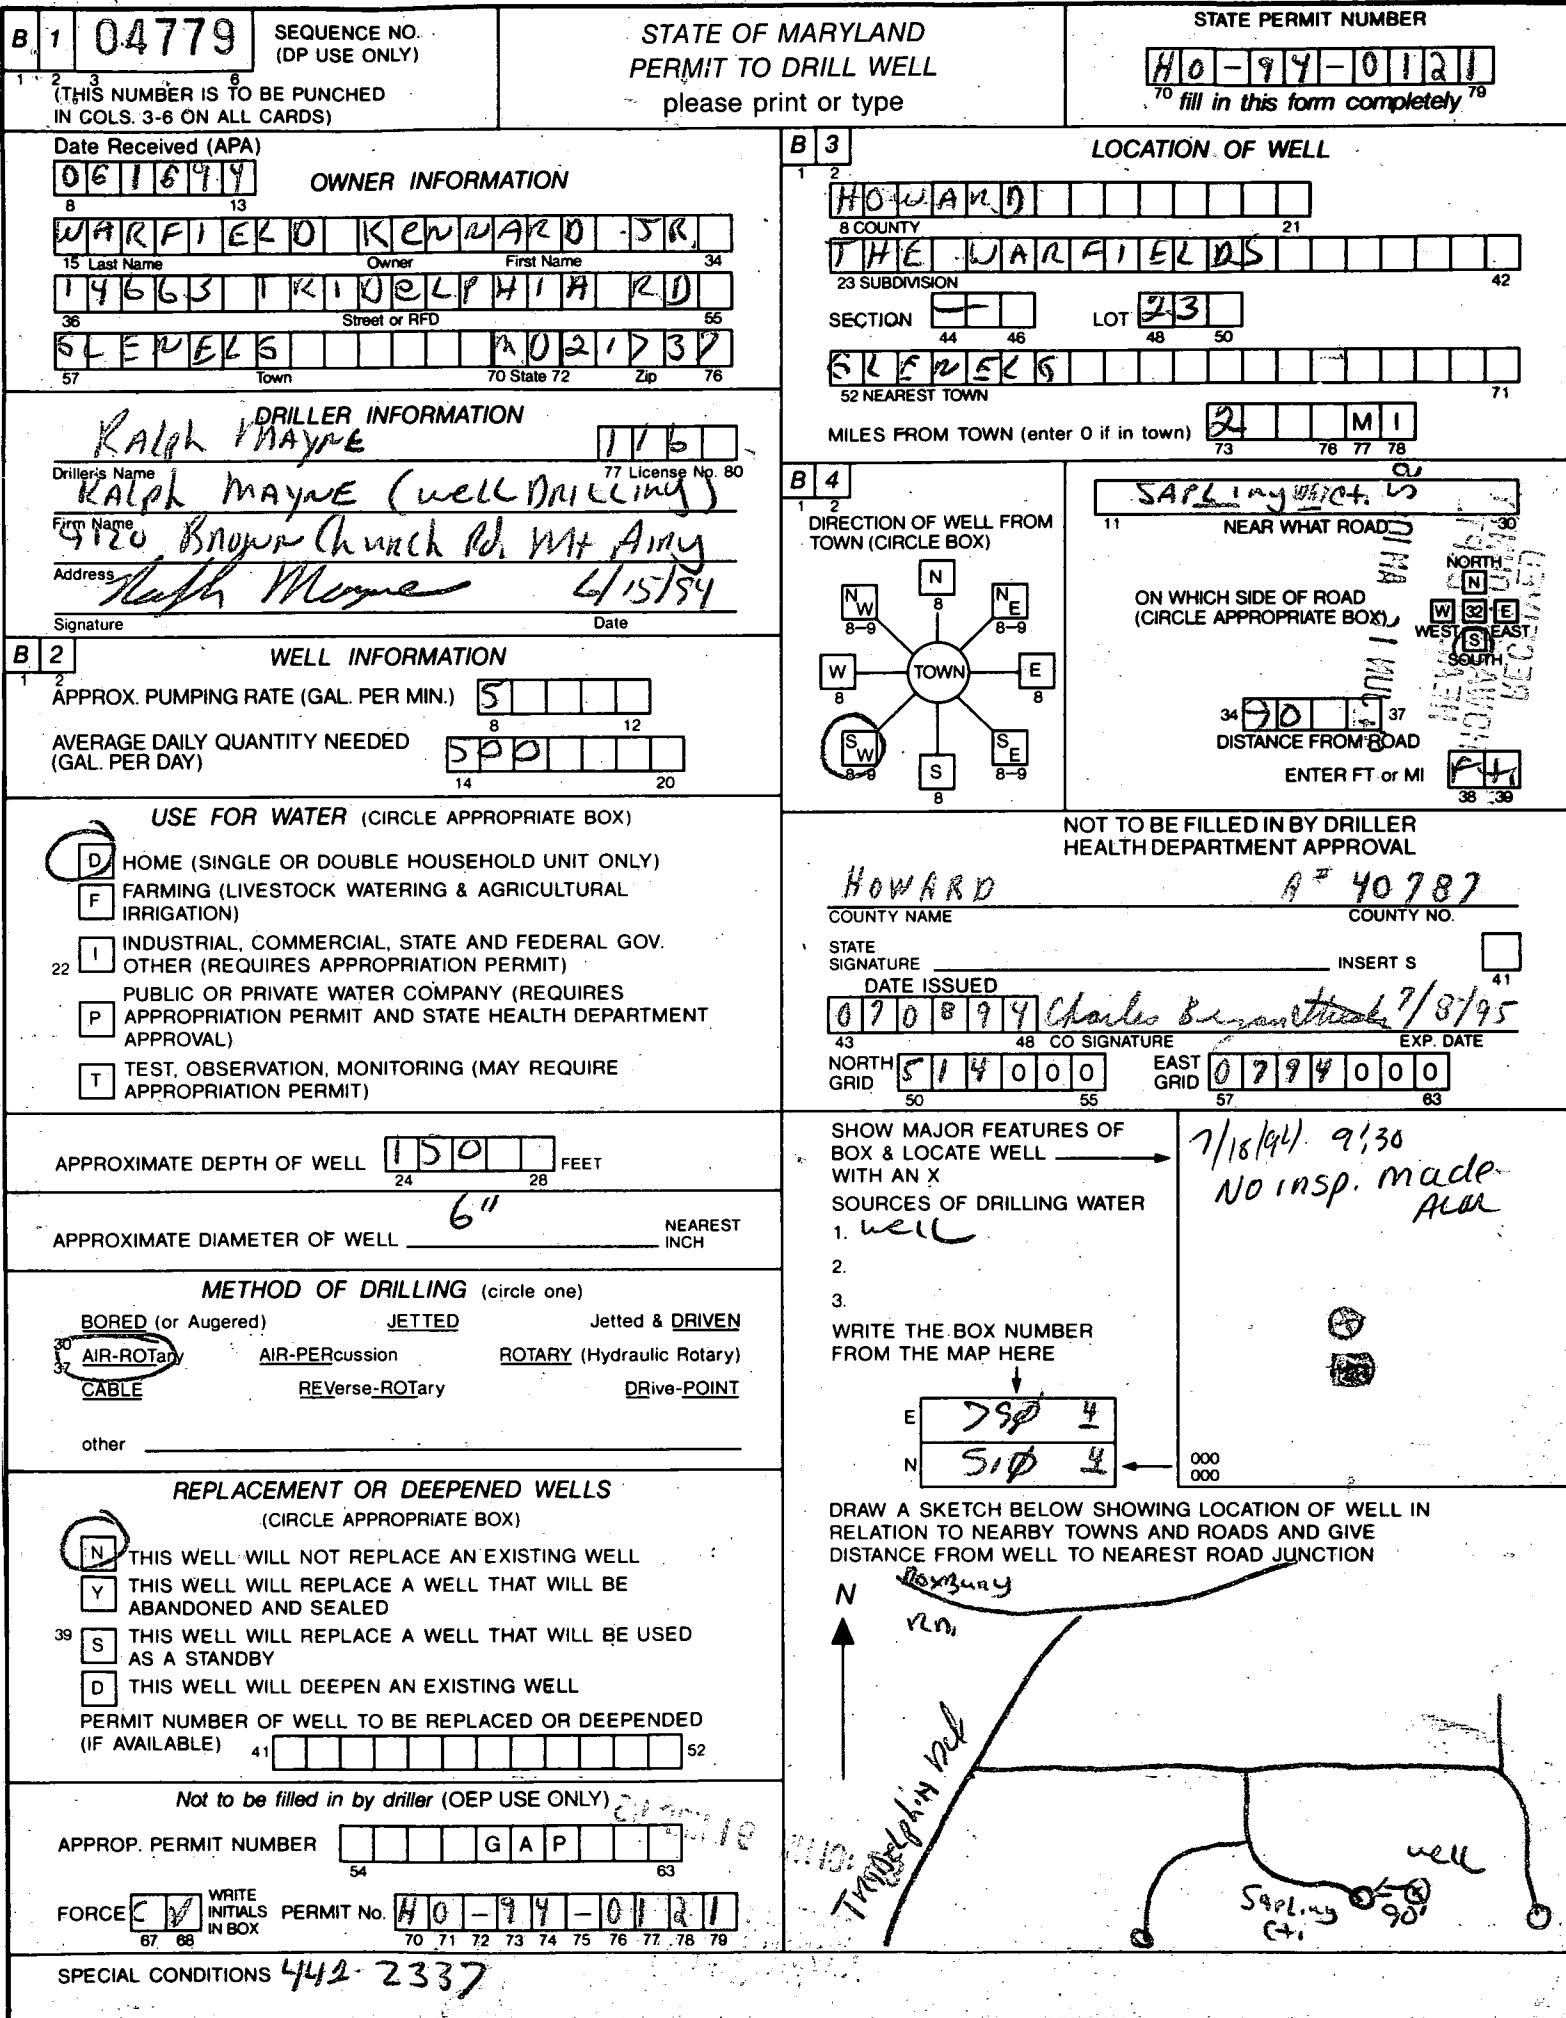 B 1 04779 SEQUENCE NO. (DP USE ONLY)
1 2 3 6
(THIS NUMBER IS TO BE PUNCHED
IN COLS. 3-6 ON ALL CARDS)
STATE OF MARYLAND
PERMIT TO DRILL WELL
please print or type
STATE PERMIT NUMBER
HO-94-0121
70 fill in this form completely 79
Date Received (APA)
061694
8 13
OWNER INFORMATION
WARFIELD KENNARD JR.
15 Last Name Owner First Name 34
14663 TRIDELPHIA RD
36 Street or RFD 55
GLENELG MD 21737
57 Town 70 State 72 Zip 76
DRILLER INFORMATION
Ralph MAYNE 116
Driller's Name 77 License No. 80
RALph MAYNE (well DRILLING)
Firm Name
9120 Brown Church Rd. Mt Airy
Address
Ralph Mayne 6/15/94
Signature Date
B 2 WELL INFORMATION
1 2
APPROX. PUMPING RATE (GAL. PER MIN.) 5
8 12
AVERAGE DAILY QUANTITY NEEDED
(GAL. PER DAY) 500
14 20
USE FOR WATER (CIRCLE APPROPRIATE BOX)
D HOME (SINGLE OR DOUBLE HOUSEHOLD UNIT ONLY)
F FARMING (LIVESTOCK WATERING & AGRICULTURAL
IRRIGATION)
22 I INDUSTRIAL, COMMERCIAL, STATE AND FEDERAL GOV.
OTHER (REQUIRES APPROPRIATION PERMIT)
PUBLIC OR PRIVATE WATER COMPANY (REQUIRES
P APPROPRIATION PERMIT AND STATE HEALTH DEPARTMENT
APPROVAL)
T TEST, OBSERVATION, MONITORING (MAY REQUIRE
APPROPRIATION PERMIT)
APPROXIMATE DEPTH OF WELL 150 FEET
24 28
APPROXIMATE DIAMETER OF WELL 6" NEAREST
INCH
METHOD OF DRILLING (circle one)
BORED (or Augered) JETTED Jetted & DRIVEN
30
AIR-ROTary AIR-PERcussion ROTARY (Hydraulic Rotary)
37
CABLE REVerse-ROTary DRive-POINT
other
REPLACEMENT OR DEEPENED WELLS
(CIRCLE APPROPRIATE BOX)
N THIS WELL WILL NOT REPLACE AN EXISTING WELL
Y THIS WELL WILL REPLACE A WELL THAT WILL BE
ABANDONED AND SEALED
39 S THIS WELL WILL REPLACE A WELL THAT WILL BE USED
AS A STANDBY
D THIS WELL WILL DEEPEN AN EXISTING WELL
PERMIT NUMBER OF WELL TO BE REPLACED OR DEEPENDED
(IF AVAILABLE) 41 52
Not to be filled in by driller (OEP USE ONLY)
APPROP. PERMIT NUMBER GAP
54 63
FORCE WRITE INITIALS IN BOX PERMIT No. HO-94-0121
67 68 70 71 72 73 74 75 76 77 78 79
SPECIAL CONDITIONS 442-2337
B 3 LOCATION OF WELL
1 2
HOWARD
8 COUNTY 21
THE WARFIELDS
23 SUBDIVISION 42
SECTION — LOT 23
44 46 48 50
GLENELG
52 NEAREST TOWN 71
MILES FROM TOWN (enter 0 if in town) 2 MI
73 76 77 78
B 4
1 2
DIRECTION OF WELL FROM
TOWN (CIRCLE BOX)
N
8
NW NE
8-9 8-9
W TOWN E
8 8
SW SE
8-9 S 8-9
8
SAPLing Ct.
11 NEAR WHAT ROAD 30
ON WHICH SIDE OF ROAD
(CIRCLE APPROPRIATE BOX)
NORTH
N
W 32 E
WEST EAST
S
SOUTH
34 90 37
DISTANCE FROM ROAD
ENTER FT or MI Ft
38 39
NOT TO BE FILLED IN BY DRILLER
HEALTH DEPARTMENT APPROVAL
HOWARD A# 40787
COUNTY NAME COUNTY NO.
STATE
SIGNATURE INSERT S
41
DATE ISSUED
070894 Charles 7/8/95
43 48 CO SIGNATURE EXP. DATE
NORTH GRID 514000 EAST GRID 0794000
50 55 57 63
SHOW MAJOR FEATURES OF
BOX & LOCATE WELL
WITH AN X
7/18/94 9:30
No insp. made
SOURCES OF DRILLING WATER
1. well
2.
3.
WRITE THE BOX NUMBER
FROM THE MAP HERE
E 790 4
N 510 4
000
000
DRAW A SKETCH BELOW SHOWING LOCATION OF WELL IN
RELATION TO NEARBY TOWNS AND ROADS AND GIVE
DISTANCE FROM WELL TO NEAREST ROAD JUNCTION
N
Roxbury
Rd.
Tridelphia Rd
well
Sapling
Ct.
90'